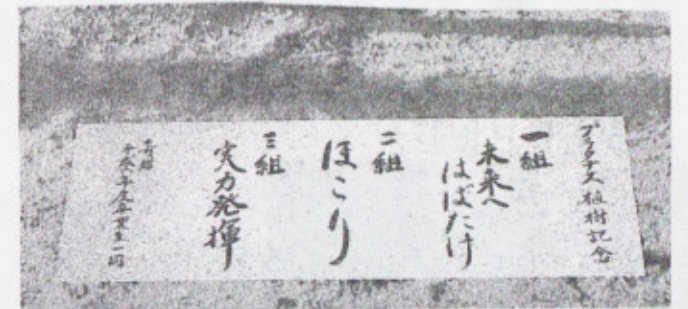 プラタナス植樹記念
一組
未来へ
はばたけ
二組
ほこり
三組
実力発揮
年度卒業生一同